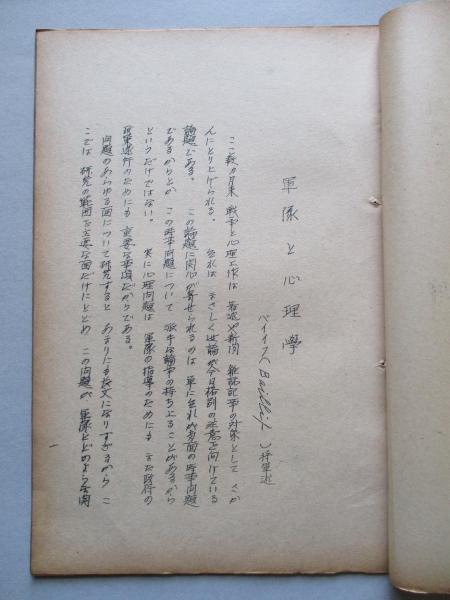 軍隊と心理學
バイイフ(Baillif)将軍述
ここ数カ月来 戦争と心理工作は 放送や新聞 雑誌記事の対象として さか
んにとり上げられる。 これは まさしく世論が今日格別の注意を向けている
論題である。 この論題に関心が寄せられるのは 単にそれが当面の時事問題
であるからとか この時事問題について 派手な論争の持ち上ることがあるから
というだけではない。 実に心理問題は 軍隊の指導のためにも また政府の
政策遂行のためにも 重要な事項だからである。
問題のあらゆる面について研究すると あまりにも長文になりすぎるから こ
こでは 研究の範囲を主要な面だけにとどめ この問題が 軍隊とどのような関
一